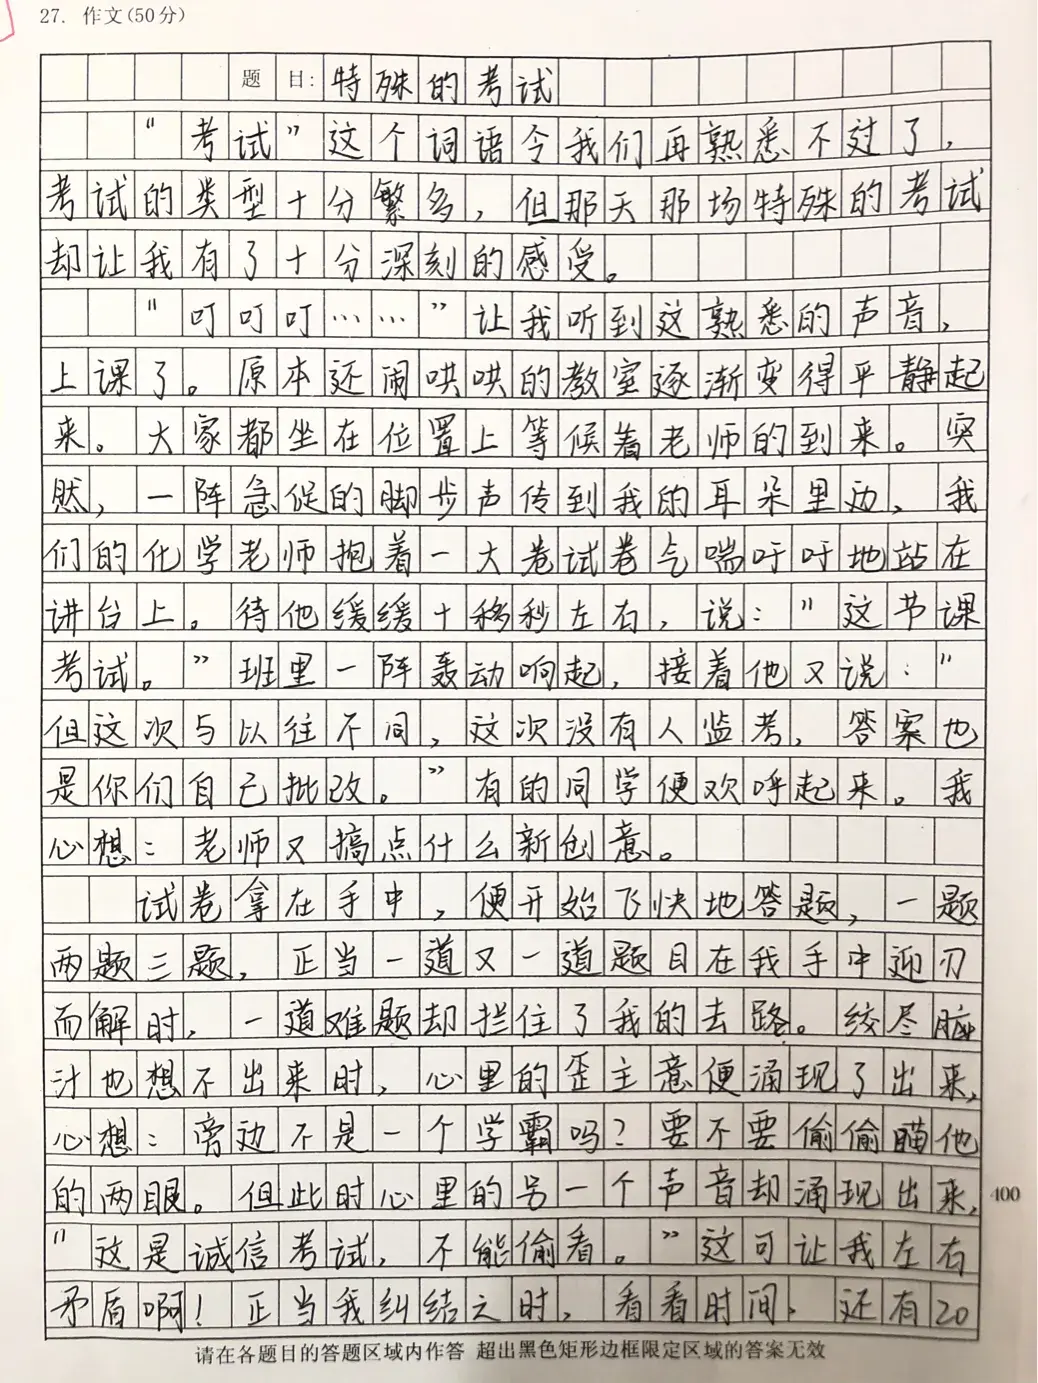 27. 作文(50分)
题目:特殊的考试
“考试”这个词语令我们再熟悉不过了，
考试的类型十分繁多，但那天那场特殊的考试
却让我有了十分深刻的感受。
“叮叮叮……”让我听到这熟悉的声音，
上课了。原本还闹哄哄的教室逐渐变得平静起
来。大家都坐在位置上等候着老师的到来。突
然，一阵急促的脚步声传到我的耳朵里边，我
们的化学老师抱着一大卷试卷气喘吁吁地站在
讲台上。待他缓缓十移秒左右，说：“这节课
考试。”班里一阵轰动响起，接着他又说：“
但这次与以往不同，这次没有人监考，答案也
是你们自己批改。”有的同学便欢呼起来。我
心想：老师又搞点什么新创意。
试卷拿在手中，便开始飞快地答题，一题
两题三题，正当一道又一道题目在我手中迎刃
而解时，一道难题却拦住了我的去路。绞尽脑
汁也想不出来时，心里的歪主意便涌现了出来，
心想：旁边不是一个学霸吗？要不要偷偷瞄他
的两眼。但此时心里的另一个声音却涌现出来，
400
“这是诚信考试，不能偷看。”这可让我左右
矛盾啊！正当我纠结之时，看看时间，还有20
请在各题目的答题区域内作答 超出黑色矩形边框限定区域的答案无效